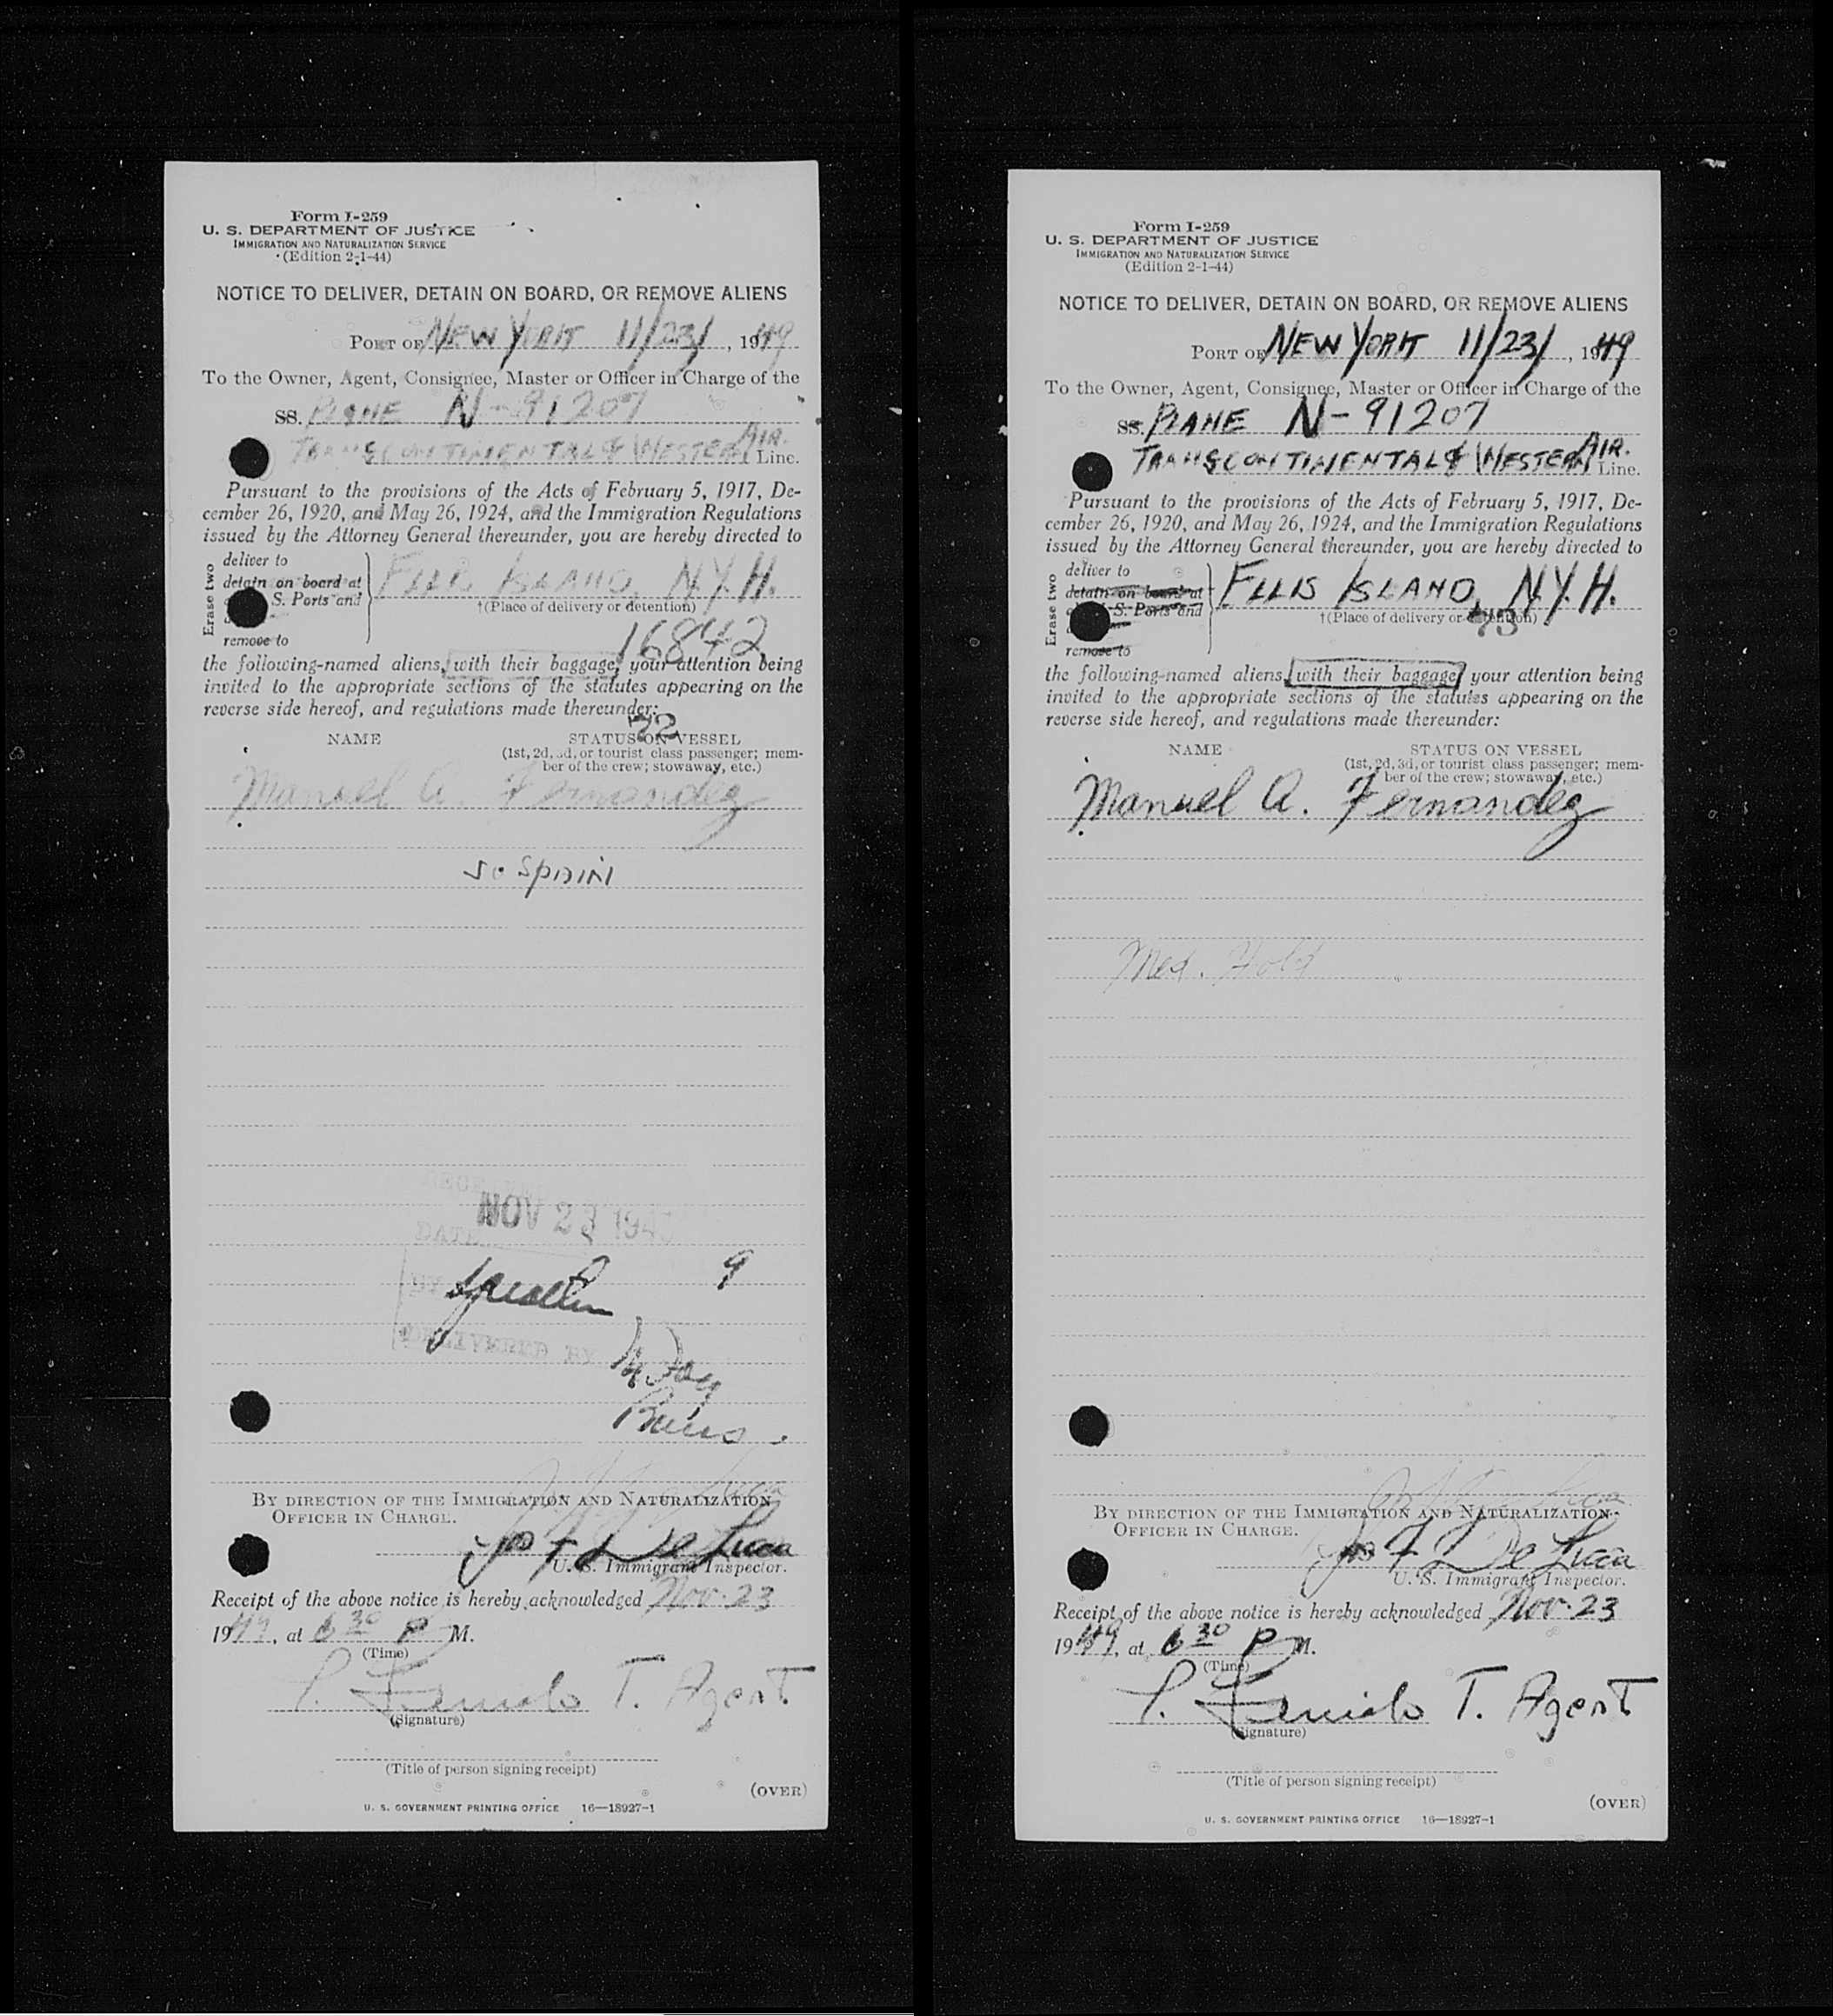 Form I-259
U. S. DEPARTMENT OF JUSTICE
IMMIGRATION AND NATURALIZATION SERVICE
(Edition 2-1-44)
NOTICE TO DELIVER, DETAIN ON BOARD, OR REMOVE ALIENS
PORT OF NEW YORK 11/23/, 1949
To the Owner, Agent, Consignee, Master or Officer in Charge of the
SS. PLANE N-91207
TRANSCONTINENTAL & WESTERN AIR. Line.
Pursuant to the provisions of the Acts of February 5, 1917, De-
cember 26, 1920, and May 26, 1924, and the Immigration Regulations
issued by the Attorney General thereunder, you are hereby directed to
Erase two
deliver to
detain on board at
S. Ports and
remove to
ELLIS ISLAND, N.Y.H.
†(Place of delivery or detention)
16842
the following-named aliens, with their baggage, your attention being
invited to the appropriate sections of the statutes appearing on the
reverse side hereof, and regulations made thereunder:
72
NAME STATUS ON VESSEL
(1st, 2d, 3d, or tourist class passenger; mem-
ber of the crew; stowaway, etc.)
Manuel A. Fernandez
Spain
NOV 23 194
DATE
BY
9
DELIVERED BY
BY DIRECTION OF THE IMMIGRATION AND NATURALIZATION
OFFICER IN CHARGE.
Jos F De Luca
U. S. Immigrant Inspector.
Receipt of the above notice is hereby acknowledged Nov. 23
1949, at 6 30 P M.
(Time)
T. Agent
(Signature)
(Title of person signing receipt)
(OVER)
U. S. GOVERNMENT PRINTING OFFICE 16—18927-1
Form I-259
U. S. DEPARTMENT OF JUSTICE
IMMIGRATION AND NATURALIZATION SERVICE
(Edition 2-1-44)
NOTICE TO DELIVER, DETAIN ON BOARD, OR REMOVE ALIENS
PORT OF NEW YORK 11/23/, 1949
To the Owner, Agent, Consignee, Master or Officer in Charge of the
SS. PLANE N-91207
TRANSCONTINENTAL & WESTERN AIR. Line.
Pursuant to the provisions of the Acts of February 5, 1917, De-
cember 26, 1920, and May 26, 1924, and the Immigration Regulations
issued by the Attorney General thereunder, you are hereby directed to
Erase two
deliver to
detain on board at
S. Ports and
remove to
ELLIS ISLAND, N.Y.H.
†(Place of delivery or detention)
73
the following-named aliens, with their baggage, your attention being
invited to the appropriate sections of the statutes appearing on the
reverse side hereof, and regulations made thereunder:
NAME STATUS ON VESSEL
(1st, 2d, 3d, or tourist class passenger; mem-
ber of the crew; stowaway, etc.)
Manuel A. Fernandez
Med. Hold
BY DIRECTION OF THE IMMIGRATION AND NATURALIZATION
OFFICER IN CHARGE.
Jos F De Luca
U. S. Immigrant Inspector.
Receipt of the above notice is hereby acknowledged Nov. 23
1949, at 6 30 P M.
(Time)
T. Agent
(Signature)
(Title of person signing receipt)
(OVER)
U. S. GOVERNMENT PRINTING OFFICE 16—18927-1